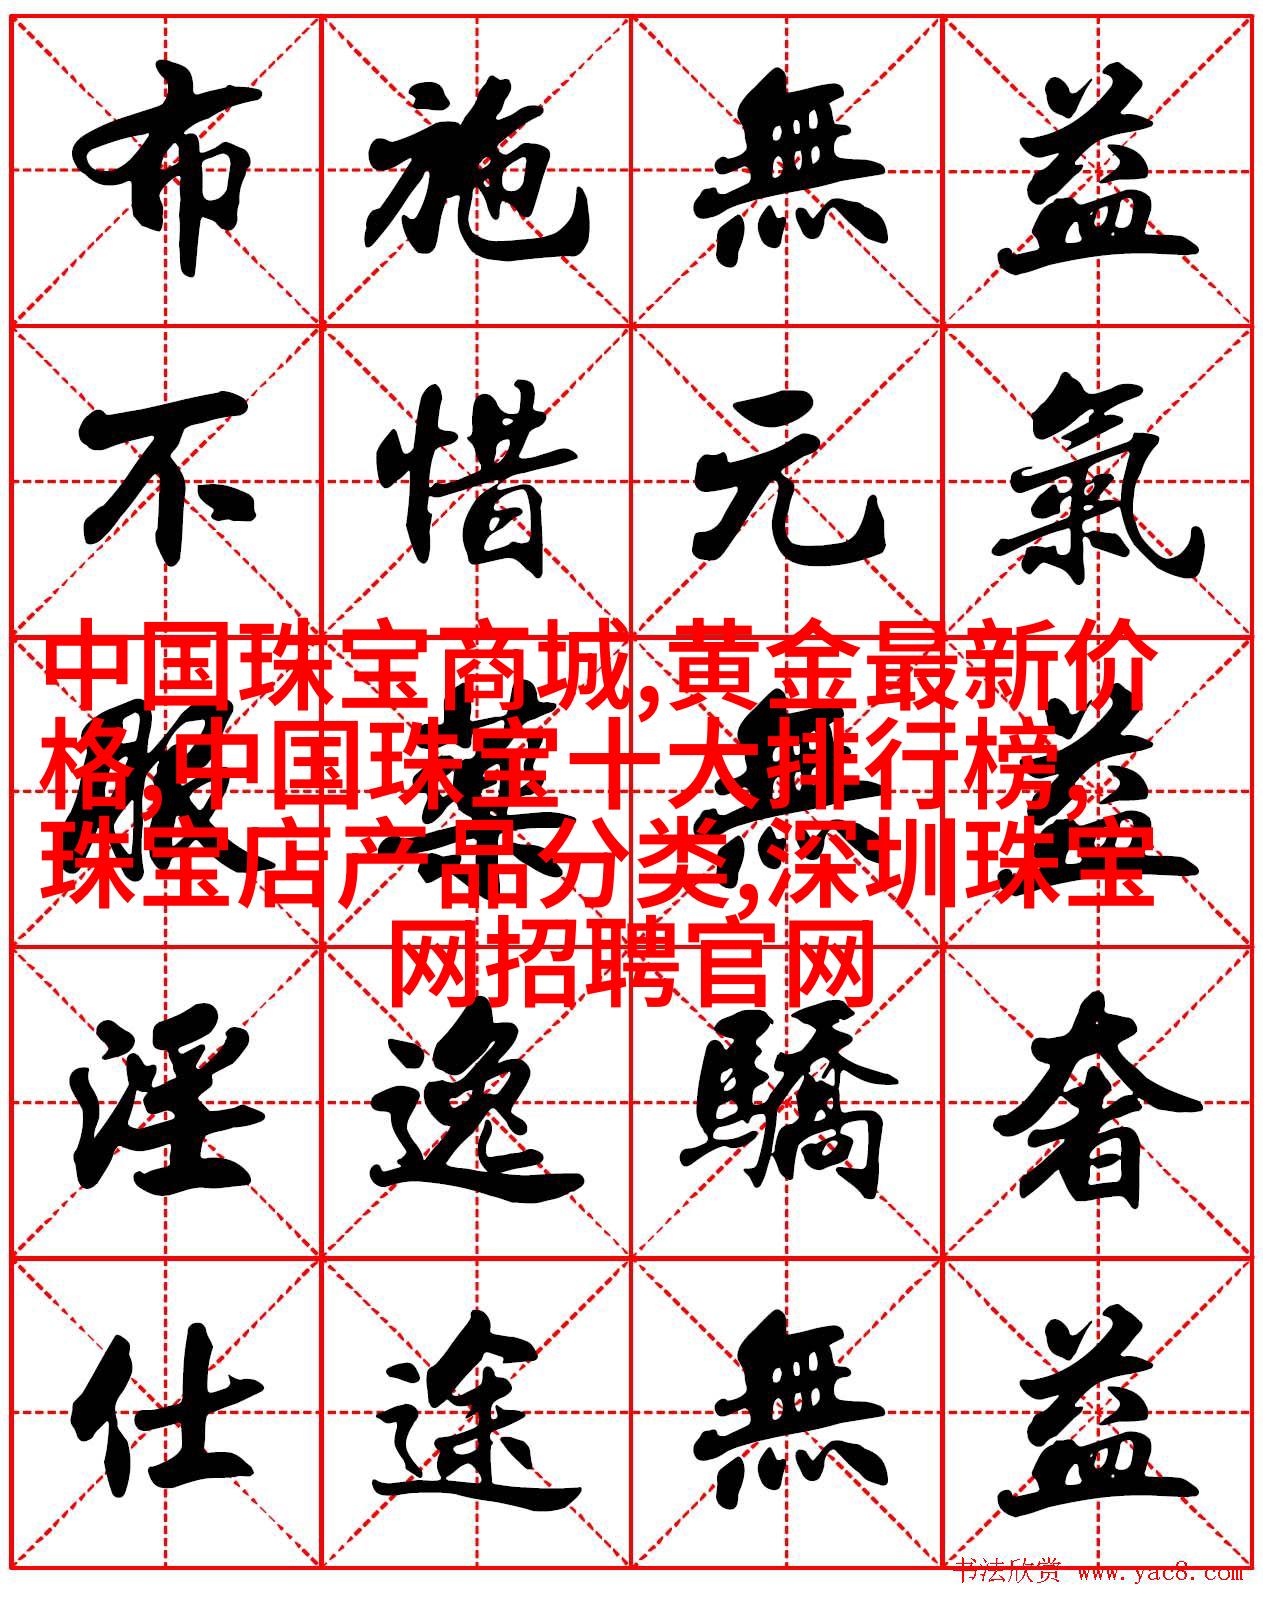 布施無益
不惜元氣
服藥無益
中国珠宝商城,黄金最新价
格,中国珠宝十大排行榜,
珠宝店产品分类,深圳珠宝
网招聘官网
淫逸驕奢
仕途無益
书法欣赏 www.yac8.com